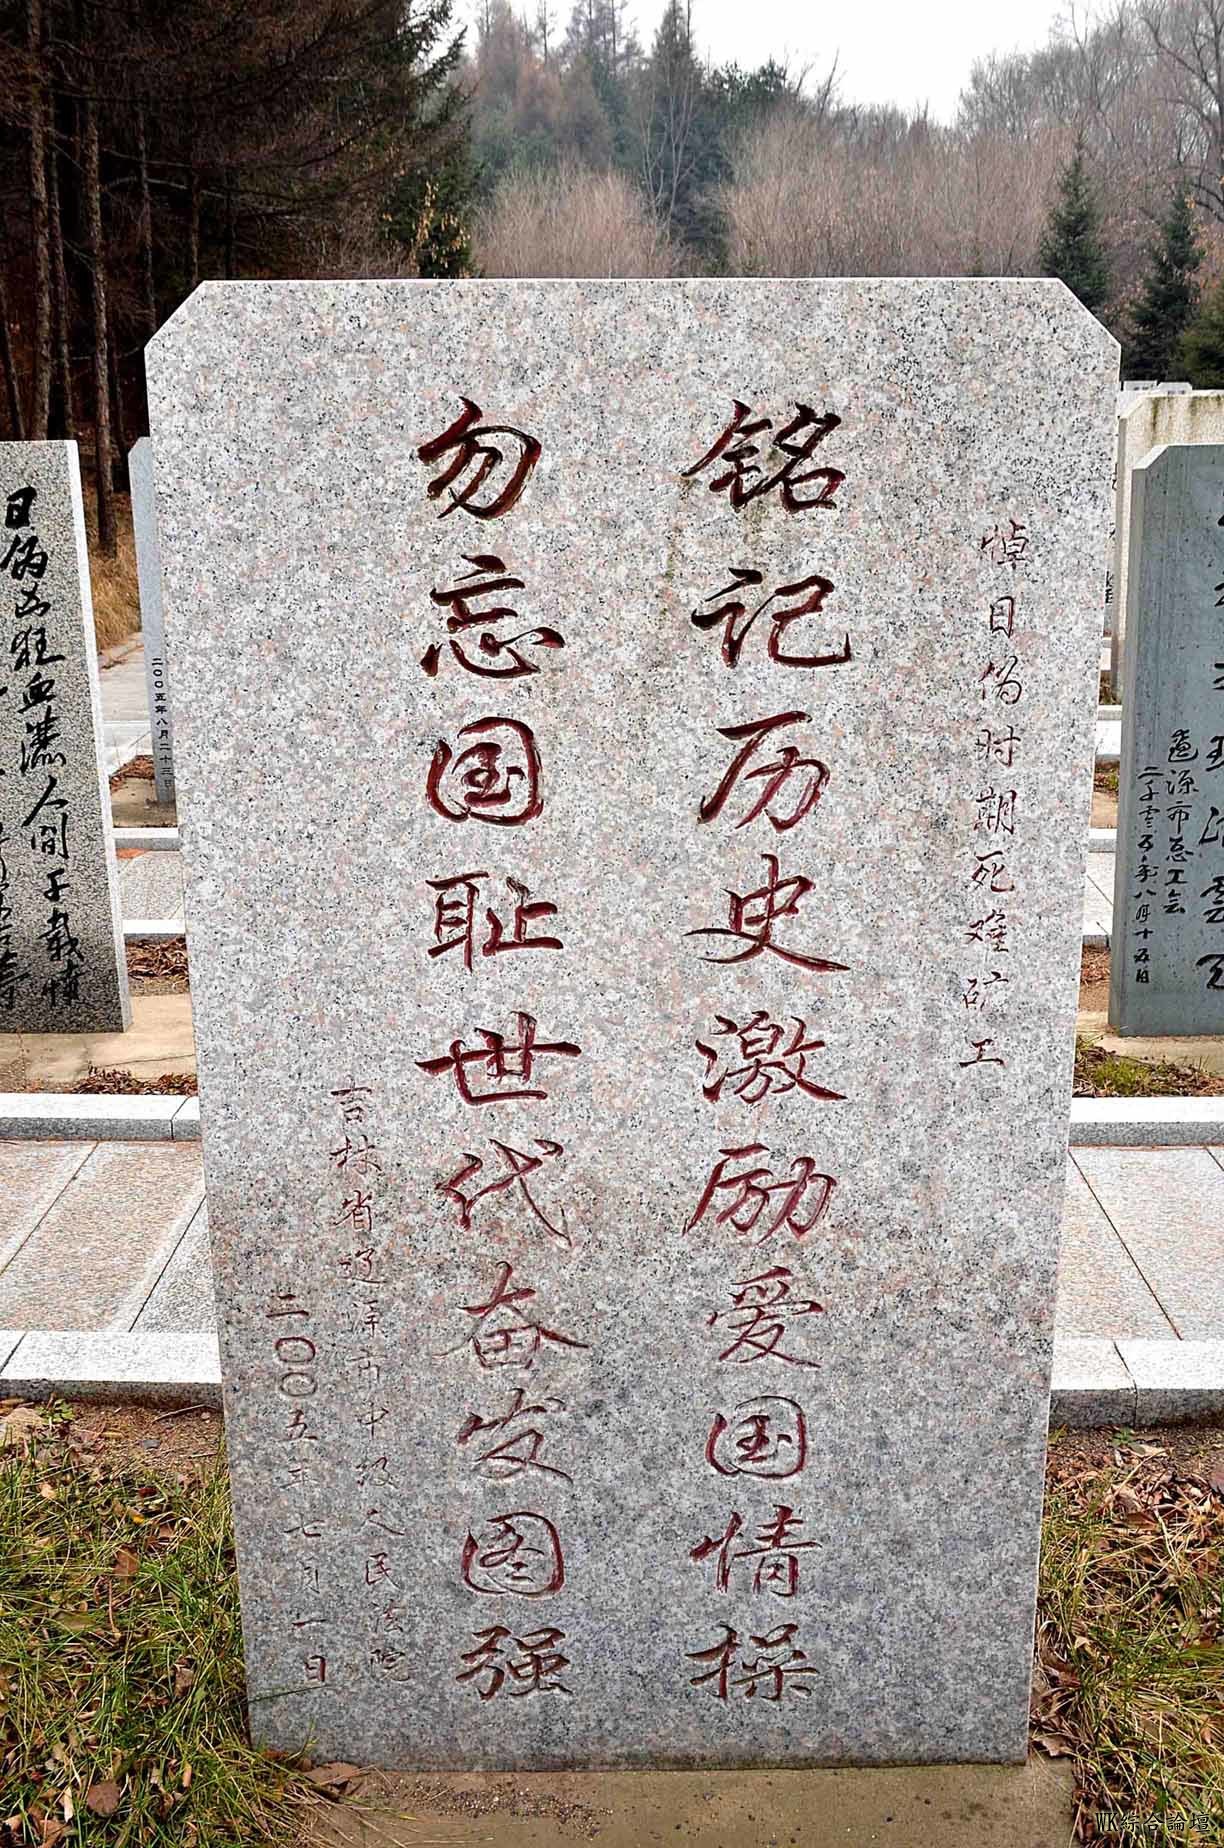 悼日伪时期死难矿工
铭记历史激励爱国情操
勿忘国耻世代奋发图强
吉林省辽源市中级人民法院
二〇〇五年七月一日
辽源市总工会
二零零五年八月十五日
二〇〇五年八月二十三日
日伪凶狂血漾人间
WK综合論壇